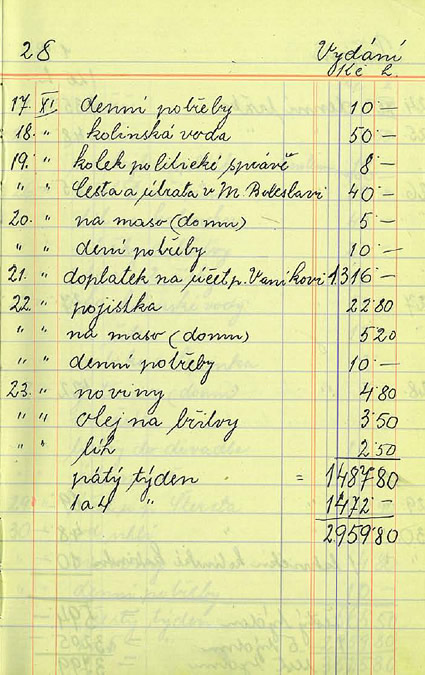 28 Vydání
Kč h.
17. XI. denní potřeby 10 —
18. " kolínská voda 50 —
19. " kolek politické správě 8 —
" " cesta a útrata v M. Boleslavi 40 —
20. " na maso (domu) 5 —
" " dení potřeby 10 —
21. " doplatek na účet p. Vaníkovi 1316 —
22. " pojistka 22 80
" na maso (domu) 5 20
" " denní potřeby 10 —
23. " noviny 4 80
" " olej na břitvy 3 50
" " líh 2 50
pátý týden = 1487 80
1 a 4 " 1472 —
2959 80